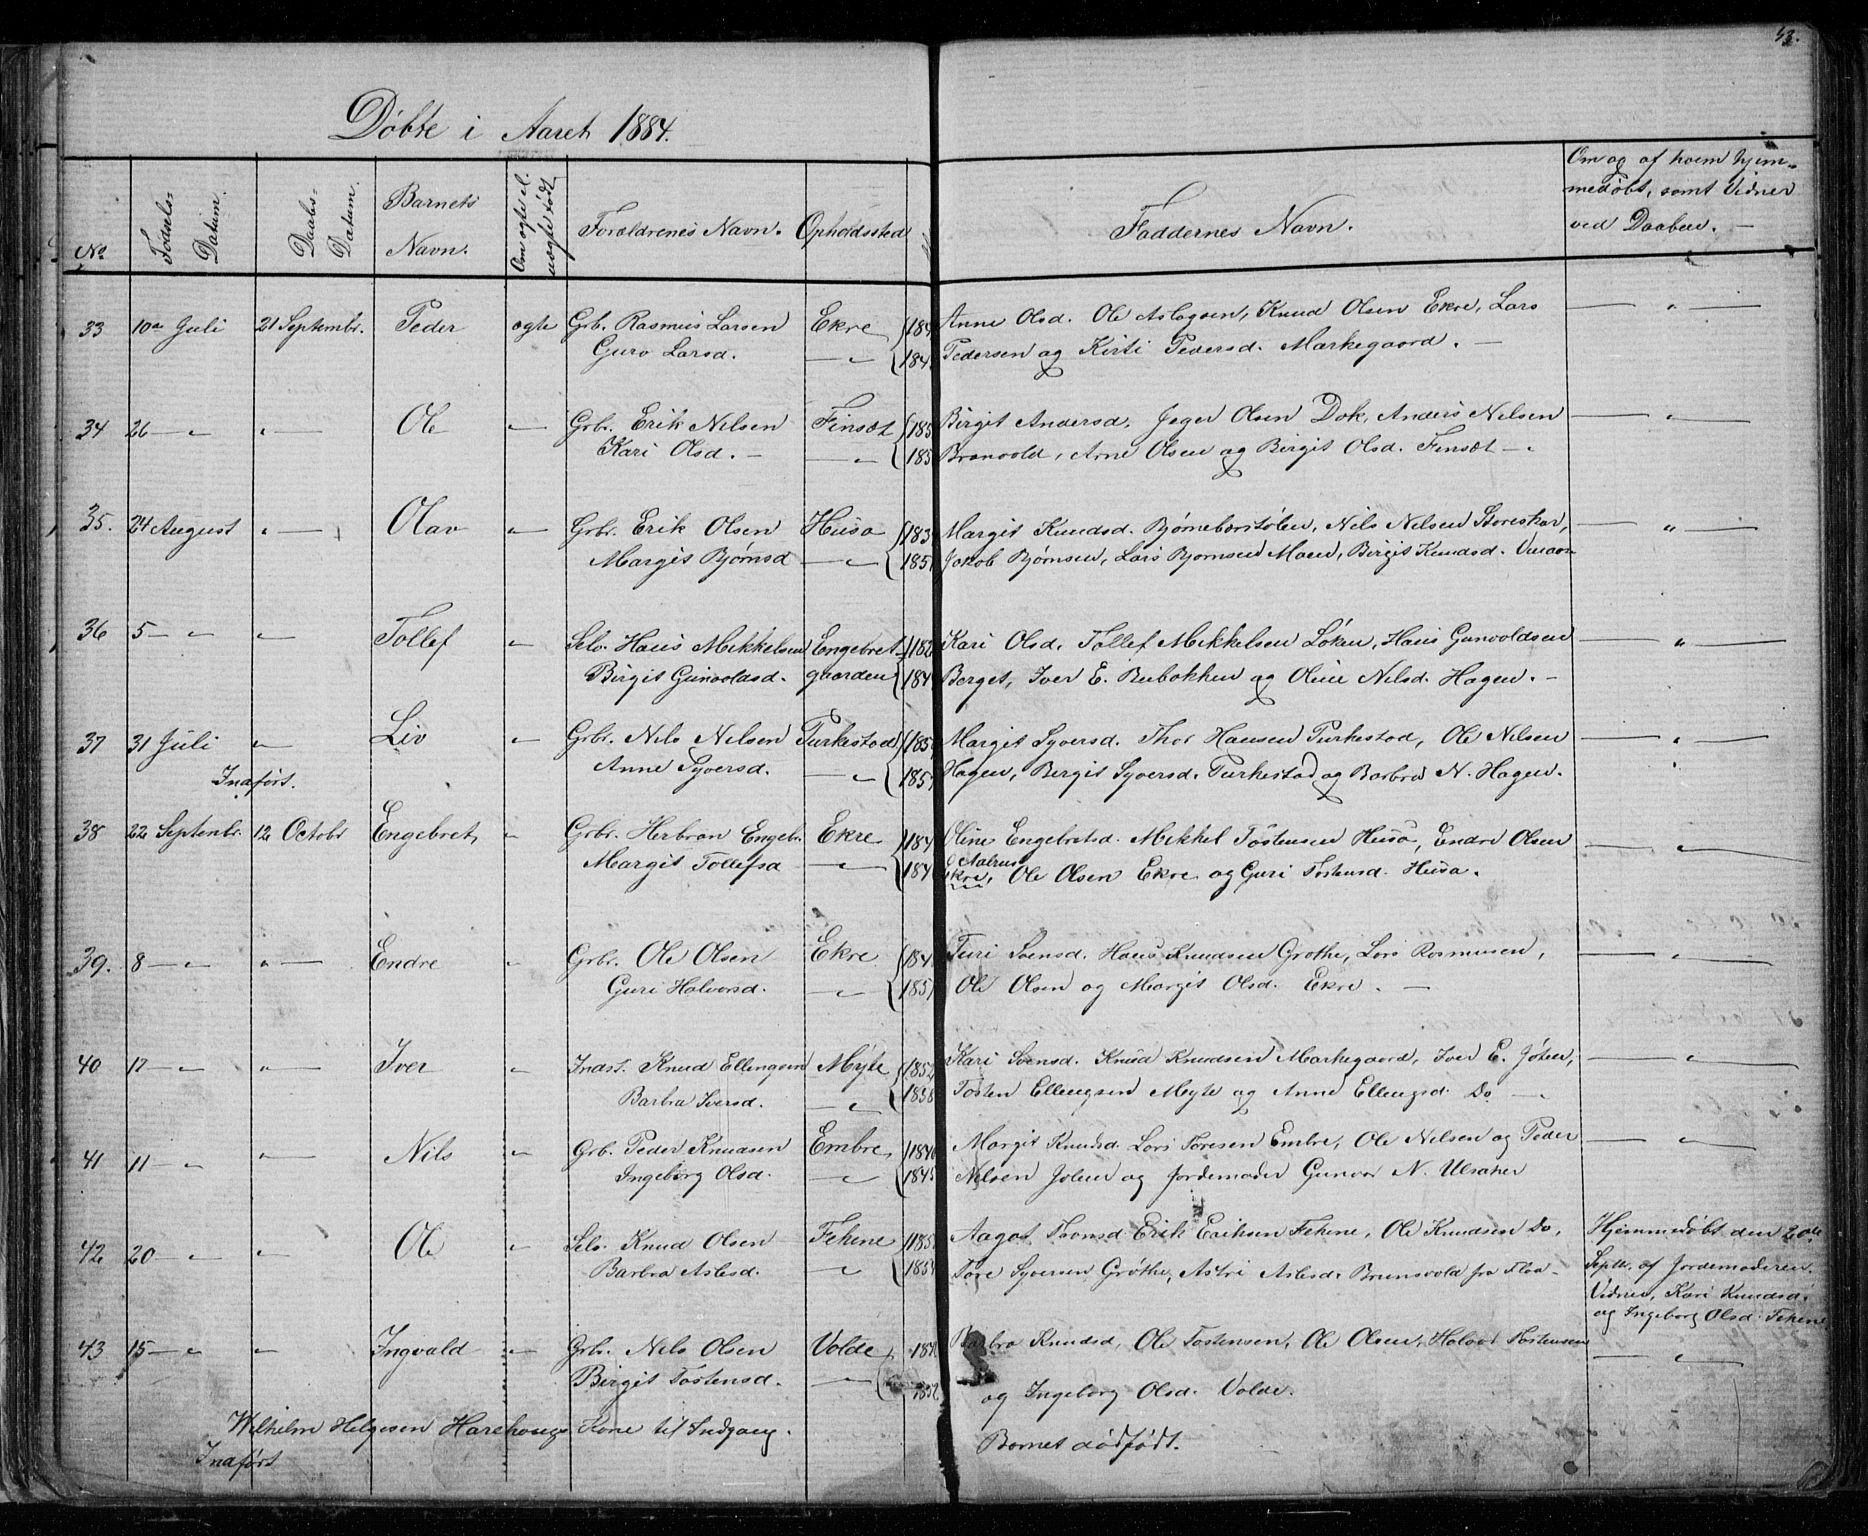 53.
Døbte i Aaret 1884.
No
Fødsels-Datum.
Daabs-Datum.
Barnets Navn.
Om ægte el. uægte født
Forældrenes Navn.
Opholdssted
Faddernes Navn.
Om og af hvem hjem-
medøbt, samt Vidner
ved Daaben. —
33 10de Juli 21 Septembr. Peder ægte Grb. Rasmus Larsen Ekre 184 Anne Olsd. Ole Aslagsen, Knud Olsen Ekre, Lars — " —
Guro Larsd. — " — 184 Pedersen og Kirti Pedersd. Markegaard. —
34 26 — " " — Ole " — Grbr. Erik Nilsen Finset 185 Birgit Andersd. Jeger Olsen Dok, Anders Nilsen — " —
Kari Olsd. — — " — 185 Brenvold, Arne Olsen og Birgit Olsd. Finsæt —
35. 24 August " — Olav " — Grbr. Erik Olsen Husa 183 Margit Knudsd. Bjørnebørstølen, Nils Nilsen Storeskar, — " —
Margit Bjørnsd — " — 185 Jakob Bjørnsen, Lars Bjørnsen Moen, Birgit Knudsd.
36 5 — " " — Tollef " — Selv. Hans Mikkelsen Engebret- 182 Kari Olsd. Tollef Mikkelsen Løken, Hans Gunvoldsen — " —
Birgit Gunvoldsd. gaarden 184 Berget, Iver E. Rubokken og Oline Nilsd. Hagen. —
37 31 Juli " — Liv " — Grbr. Nils Nilsen Turkestad 185 Margit Syversd. Thor Hansen Turkestad, Ole Nilsen — " —
Indført. Anne Syversd. — " — 185 Hagen, Birgit Syversd. Turkestad og Barbra N. Hagen.
38 22 Septembr. 12 Octobr Engebret, " Grbr. Herbran Engebr. Ekre 184 Oline Engebretsd. Mikkel Tostensen Husa, Endre Olsen — " —
Margit Tollefsd — " — 184 Ekre, Ole Olsen Ekre og Guri Tostensd. Husa.
39. 8 — " " — Endre " Grbr. Ole Olsen Ekre 184 Turi Svensd. Hans Knudsen Grøthe, Lars Rasmusen, — " —
Guri Halvorsd. — " — 185 Ole Olsen og Margit Olsd. Ekre. —
40 17 — " " — Iver " Indst. Knud Ellingsen Myte 1852 Kari Svensd. Knud Knudsen Markegaard, Iver E. Jøten, — " —
Barbra Iversd. — " — 1858 Tosten Ellingsen Myte og Anne Ellingsd. Do —
41 11 — " " — Nils " Grb. Peder Knudsen Embre 1846 Margit Knudsd. Lars Toresen Embre, Ole Nilsen og Peder — " —
Ingeborg Olsd. — " — 1845 Nilsen Jøten og Jordemoder Gunvor N. Ulsaker
42 20 — " " — Ole " Selv. Knud Olsen Fekene 185 Aagot Thorsd. Erik Eriksen Fekene, Ole Knudsen Do, Hjemmedøbt den 20de
Barbra Aslesd. — " — 1854 Tore Syversen Grøthe, Astri Aslesd. Brunsvold fra Flaa — Septbr. af Jordemoderen.
Vidner, Kari Knudsd.
og Ingeborg Olsd. Fekene
43 15 — " " — Ingvald " — Grbr. Nils Olsen Volde 184 Barbra Knudsd, Ole Tostensen, Ole Olsen, Halvor Tostensen — " —
Birgit Tostensd. — " — 1852 og Ingeborg Olsd. Volde.
Wilhelm Helgesen Harehougs Kone til Indgang. Barnet dødfødt.
Indført